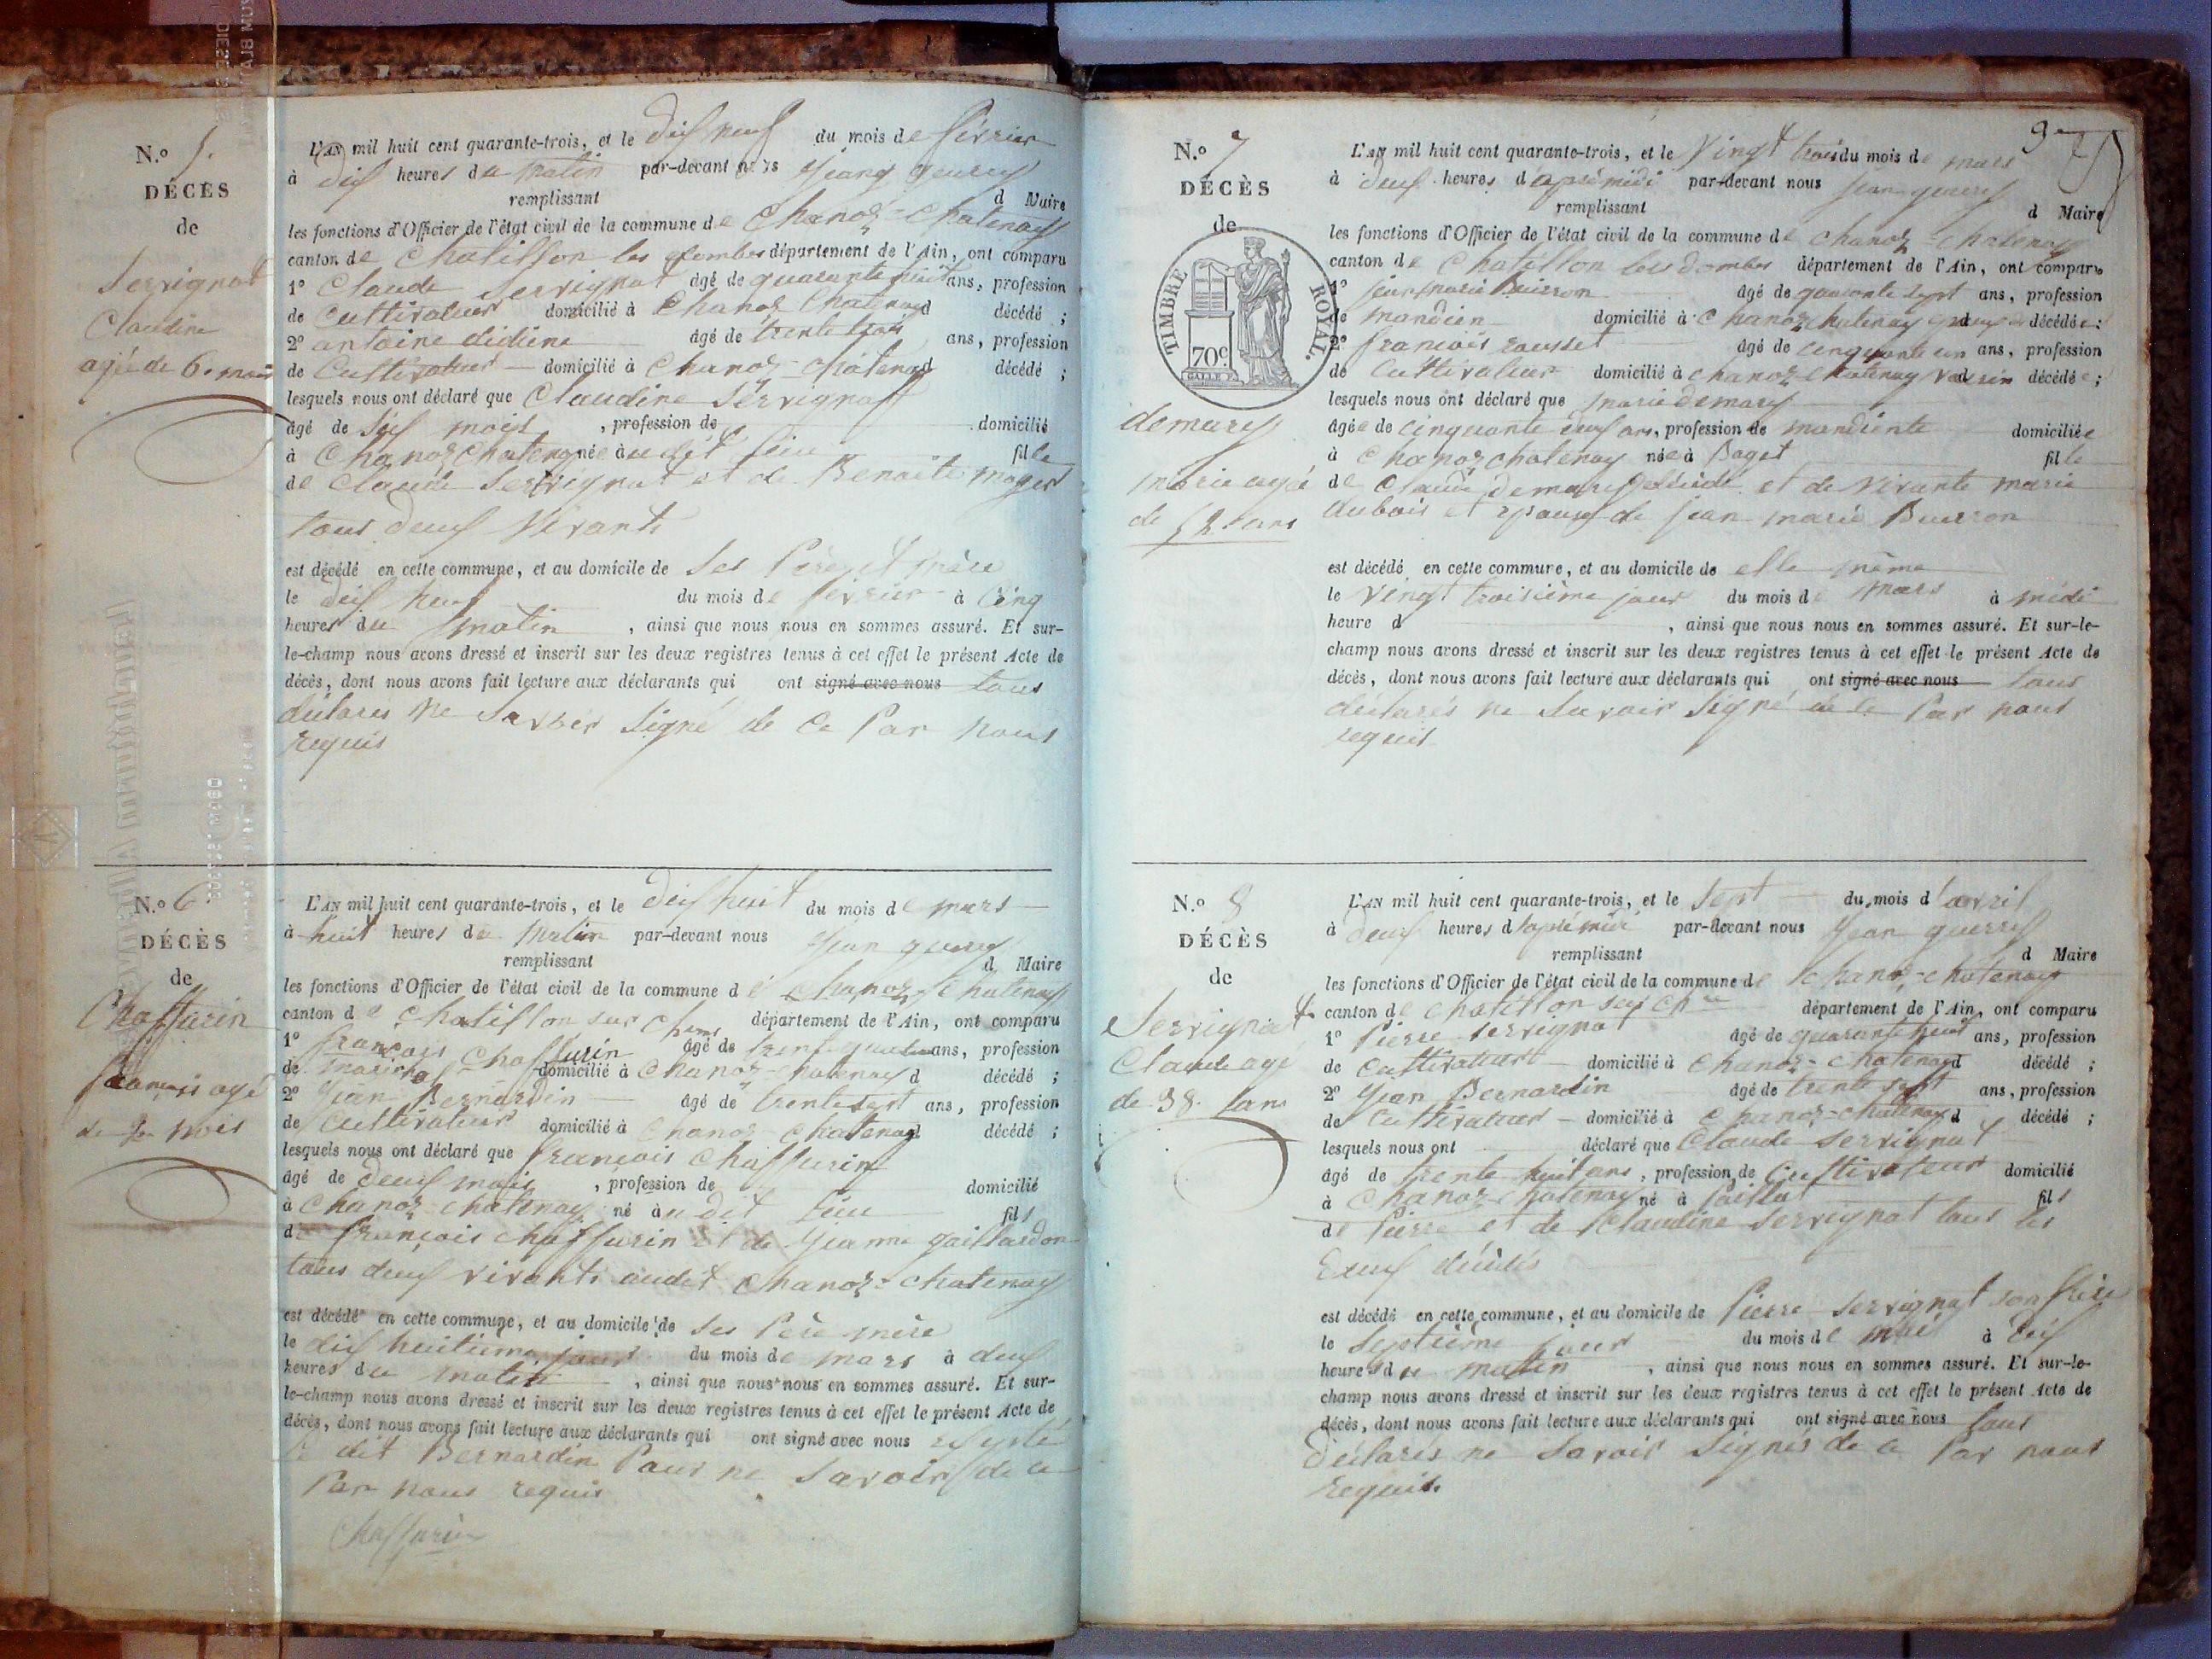 N.o 5.
DÉCÈS
de
Servignat
Claudine
agée de 6. mois
L'AN mil huit cent quarante-trois, et le dix neuf du mois de février
à dix heures du matin par-devant nous
remplissant d Maire
les fonctions d'Officier de l'état civil de la commune de Chanoz-Chatenay
canton de Chatillon les dombes département de l'Ain, ont comparu
1o Claude Servignat âgé de quarante huit ans, profession
de Cultivateur domicilié à Chanoz Chatenay d décédé ;
2o antoine âgé de trente trois ans, profession
de Cultivateur domicilié à Chanoz-Chatenay d décédé ;
lesquels nous ont déclaré que Claudine Servignat
âgé de Six mois , profession de domicilié
à Chanoz Chatenay née au dit lieu fille
de Claude Servignat et de Benoite
tous deux Vivants
est décédé en cette commune, et au domicile de Ses Père et mère
le dix neuf du mois de février à Cinq
heures du matin , ainsi que nous nous en sommes assuré. Et sur-
le-champ nous avons dressé et inscrit sur les deux registres tenus à cet effet le présent Acte de
décès, dont nous avons fait lecture aux déclarants qui ont signé avec nous tous
déclarés ne Savoir Signé de Ce Par Nous
requis
N.o 6.
DÉCÈS
de
Chaffurin
francois agé
de 2 mois
L'AN mil huit cent quarante-trois, et le dix huit du mois de mars
à huit heures du Matin par-devant nous Jean
remplissant d Maire
les fonctions d'Officier de l'état civil de la commune de Chanoz-Chatenay
canton de Chatillon sur département de l'Ain, ont comparu
1o françois Chaffurin âgé de ans, profession
de domicilié à Chanoz-Chatenay d décédé ;
2o Jean Bernardin âgé de trente sept ans, profession
de Cultivateur domicilié à Chanoz-Chatenay décédé ;
lesquels nous ont déclaré que françois Chaffurin
âgé de deux mois , profession de domicilié
à Chanoz-Chatenay né au dit lieu fils
de françois Chaffurin et de Jeanne gaillardon
tous deux vivants audit Chanoz-Chatenay
est décédé en cette commune, et au domicile de Ses Père mère
le dix huitième jour du mois de mars à deux
heures du matin , ainsi que nous nous en sommes assuré. Et sur-
le-champ nous avons dressé et inscrit sur les deux registres tenus à cet effet le présent Acte de
décès, dont nous avons fait lecture aux déclarants qui ont signé avec nous
le dit Bernardin Pour ne Savoir de ce
Par nous requis
Chaffurin
9
N.o 7
DÉCÈS
de
TIMBRE ROYAL.
70c
marie agée
de 52 ans
L'AN mil huit cent quarante-trois, et le Vingt trois du mois de mars
à deux heures d'aprés midi par-devant nous Jean
remplissant d Maire
les fonctions d'Officier de l'état civil de la commune de Chanoz-Chatenay
canton de Chatillon les dombes département de l'Ain, ont comparu
1o jean marie Buisson âgé de quarante sept ans, profession
de mandien domicilié à Chanoz Chatenay décédée ;
2o francois rousset âgé de cinquante un ans, profession
de Cultivateur domicilié à Chanoz-Chatenay décédée ;
lesquels nous ont déclaré que marie
âgée de cinquante deux ans, profession de mandiente domiciliée
à Chanoz chatenay née à Baget fille
de Claude et de Vivante marie
dubois et epouse de jean marie Buisson
est décédé en cette commune, et au domicile de elle même
le Vingt troisième jour du mois de mars à midi
heure d , ainsi que nous nous en sommes assuré. Et sur-le-
champ nous avons dressé et inscrit sur les deux registres tenus à cet effet le présent Acte de
décès, dont nous avons fait lecture aux déclarants qui ont signé avec nous tous
déclarés ne Savoir Signé de Ce Par nous
requis
N.o 8
DÉCÈS
de
Servignat
Claude agé
de 38 ans
L'AN mil huit cent quarante-trois, et le Sept du mois d'avril
à deux heures d'aprés midi par-devant nous Jean
remplissant d Maire
les fonctions d'Officier de l'état civil de la commune de Chanoz-Chatenay
canton de Chatillon département de l'Ain, ont comparu
1o Pierre Servignat âgé de quarante huit ans, profession
de Cultivateur domicilié à Chanoz-Chatenay d décédé ;
2o Jean Bernardin âgé de trente sept ans, profession
de Cultivateur domicilié à Chanoz-Chatenay d décédé ;
lesquels nous ont déclaré que Claude Servignat
âgé de trente huit ans, profession de Cultivateur domicilié
à Chanoz-Chatenay né à fils
de Pierre et de Claudine Servignat tous les
deux décédés
est décédé en cette commune, et au domicile de Pierre Servignat son frère
le Septième jour du mois de à dix
heures du matin , ainsi que nous nous en sommes assuré. Et sur-le-
champ nous avons dressé et inscrit sur les deux registres tenus à cet effet le présent Acte de
décès, dont nous avons fait lecture aux déclarants qui ont signé avec nous tous
déclarés ne Savoir Signés de ce Par nous
requis.